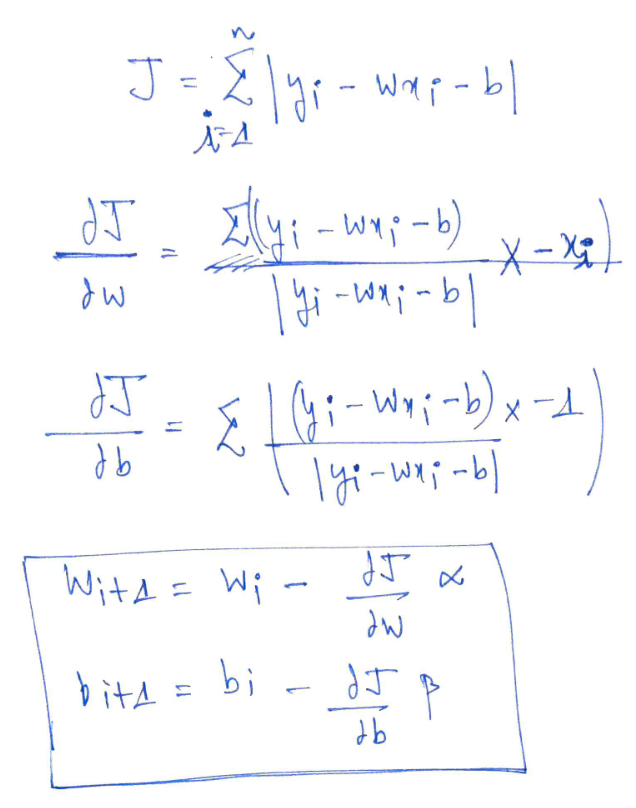 J = Σ_{i=1}^{n} |yi - wxi - b|
∂J/∂w = Σ((yi - wxi - b)/|yi - wxi - b| × -xi)
∂J/∂b = Σ((yi - wxi - b) × -1/|yi - wxi - b|)
Wi+1 = Wi - ∂J/∂w α
bi+1 = bi - ∂J/∂b β